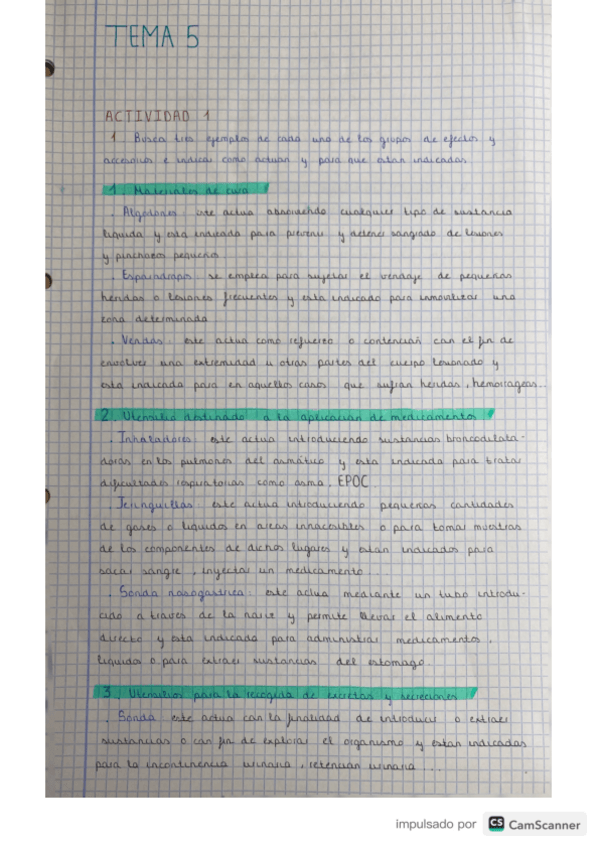 TEMA 5
ACTIVIDAD 1
1. Busca tres ejemplos de cada uno de los grupos de efectos y
accesorios e indicar como actuan y para que estan indicados
1. Materiales de cura
. Algodones: este actua absorviendo cualquier tipo de sustancia
liquida y esta indicado para prevenir y detener sangrado de lesiones
y pinchazos pequeños
. Esparadrapo: se emplea para sujetar el vendaje de pequeñas
heridas o lesiones frecuentes y esta indicado para inmovilizar una
zona determinada
. Vendas: este actua como refuerzo o contención con el fin de
envolver una extremidad u otras partes del cuerpo lesionado y
está indicada para en aquellos casos que sufran heridas, hemorragias...
2. Utensilio destinado a la aplicación de medicamentos
. Inhaladores: este actua introduciendo sustancias broncodilata-
doras en los pulmones del asmático y esta indicada para tratar
dificultades respiratorias como asma, EPOC
. Jeringuillas: este actua introduciendo pequeñas cantidades
de gases o liquidos en areas innaccesibles o para tomar muestras
de los componentes de dichos lugares y estan indicados para
sacar sangre, inyectar un medicamento...
. Sonda nasogastrica: este actua mediante un tubo introdu-
cido a traves de la nariz y permite llevar el alimento
directo y esta indicado para administrar medicamentos,
liquidos o para extraer sustancias del estomago.
3. Utensilios para la recogida de excretas y secreciones
. Sonda este actua con la finalidad de introducir o extraer
sustancias o con fin de explorar el organismo y estan indicadas
para la incontinencia urinaria, retencion urinaria...
impulsado por CS CamScanner